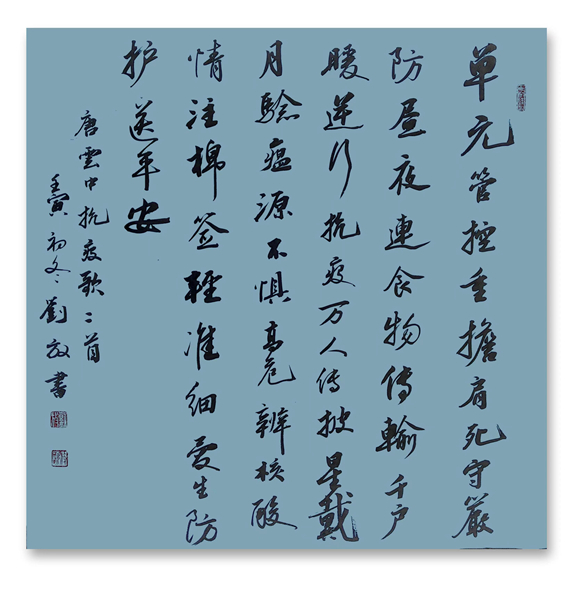 单元管控重擔肩死守嚴
防昼夜連食物傳輸千户
暖逆行抗疫万人傳披星戴
月驗瘟源不惧高危辨核酸
情注棉签輕准細爱生防
护送平安
唐雲中抗疫歌二首
壬寅初冬劉書